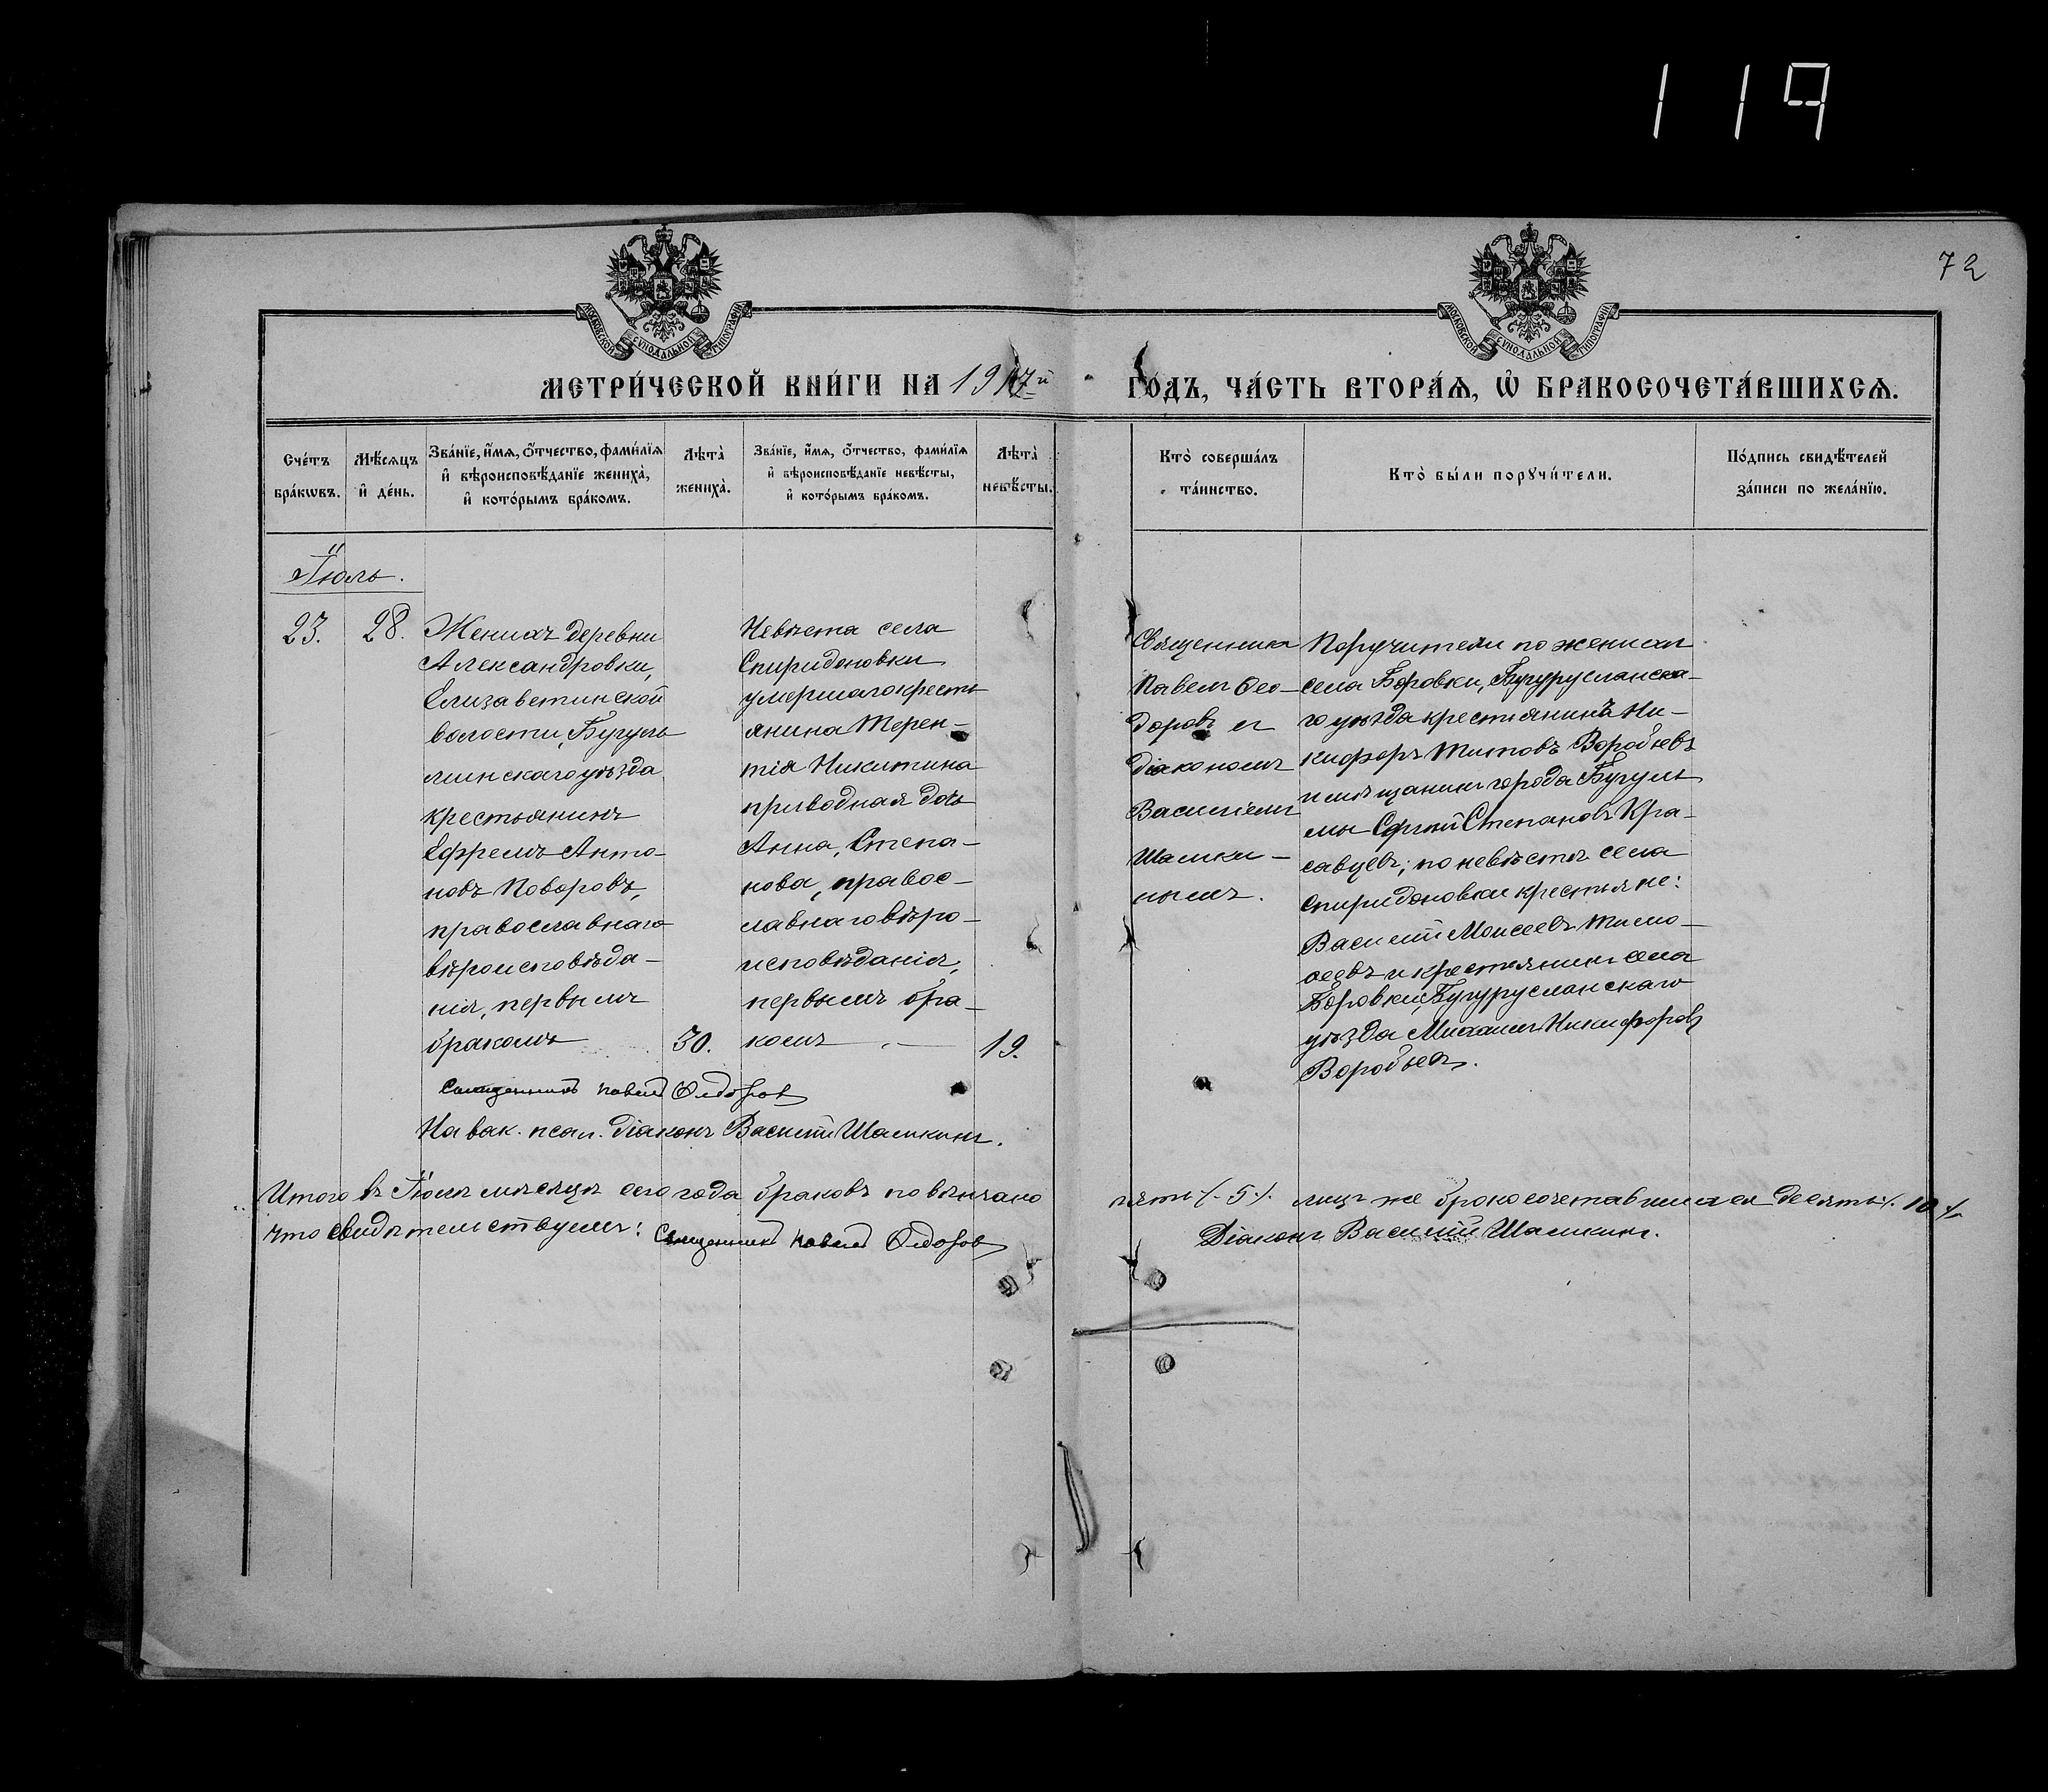 119
72
МОСКОВСКОЙ СѴНОДАЛЬНОЙ ТИПОГРАФІИ
МОСКОВСКОЙ СѴНОДАЛЬНОЙ ТИПОГРАФІИ
МЕТРИ́ЧЕСКОЙ КНИ́ГИ НА 1917й ГО́ДЪ, ЧА́СТЬ ВТОРА́Ѧ, Ѡ҆ БРАКОСОЧЕТА́ВШИХСѦ.
Сче́тъ бра́кωвъ.
Мѣ́сѧцъ и҆ де́нь.
Зва́нїе, и҆́мѧ, ѻ҆́тчество, фами́лїѧ
и҆ вѣроисповѣ́данїе жениха̀,
и҆ кото́рымъ бра́комъ.
Лѣта̀ жениха̀.
Зва́нїе, и҆́мѧ, ѻ҆́тчество, фами́лїѧ
и҆ вѣроисповѣ́данїе невѣ́сты,
и҆ кото́рымъ бра́комъ.
Лѣта̀ невѣ́сты.
Кто̀ соверша́лъ та́инство.
Кто̀ бы́ли порꙋчи́тели.
По́дпись свидѣ́телей
за́писи по жела́нїю.
Іюль.
23.
28.
Женихъ деревни
Александровки,
Елизаветинской
волости, Бугуль
минскаго уѣзда
крестьянинъ
Ефремъ Анто-
новъ Поворовъ,
православнаго
вѣроисповѣда-
нія, первымъ
бракомъ
30.
Невѣста села
Спиридоновки
умершаго кресть
янина Терен-
тія Никитина
приводная дочь
Анна, Степа-
нова, правос-
лавнаго вѣро-
исповѣданія,
первымъ бра-
комъ
19.
Священникъ Павелъ Ѳедоровъ
На вак. псал. діаконъ Василій Шашкинъ.
Священникъ
Павелъ Ѳео-
доровъ съ
діакономъ
Василіемъ
Шашки-
нымъ.
Поручители по женихѣ
села Боровки, Бугурусланска-
го уѣзда крестьянинъ Ни-
кифоръ Титовъ Воробьевъ
и мѣщанинъ города Бугуль
мы Сергій Степановъ Кра-
савцевъ; по невѣстѣ села
Спиридоновки крестьяне:
Василій Моисеевъ Тимо-
ѳеевъ и крестьянинъ села
Боровки, Бугурусланскаго
уѣзда Михаилъ Никифоровъ
Воробьевъ.
Итого въ Іюлѣ мѣсяцѣ сего года браковъ повѣнчано пять ./. 5 ./. лицъ же бракосочетавшихся десять ./. 10 ./.
что свидѣтельствуемъ: Священникъ Павелъ Ѳедоровъ Діаконъ Василій Шашкинъ.